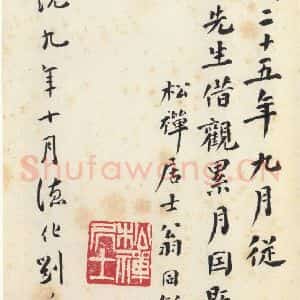 二十五年九月從
先生借觀累月因
松禪居士翁同
九年十月德化劉
松禪居士
Shufawang.CN